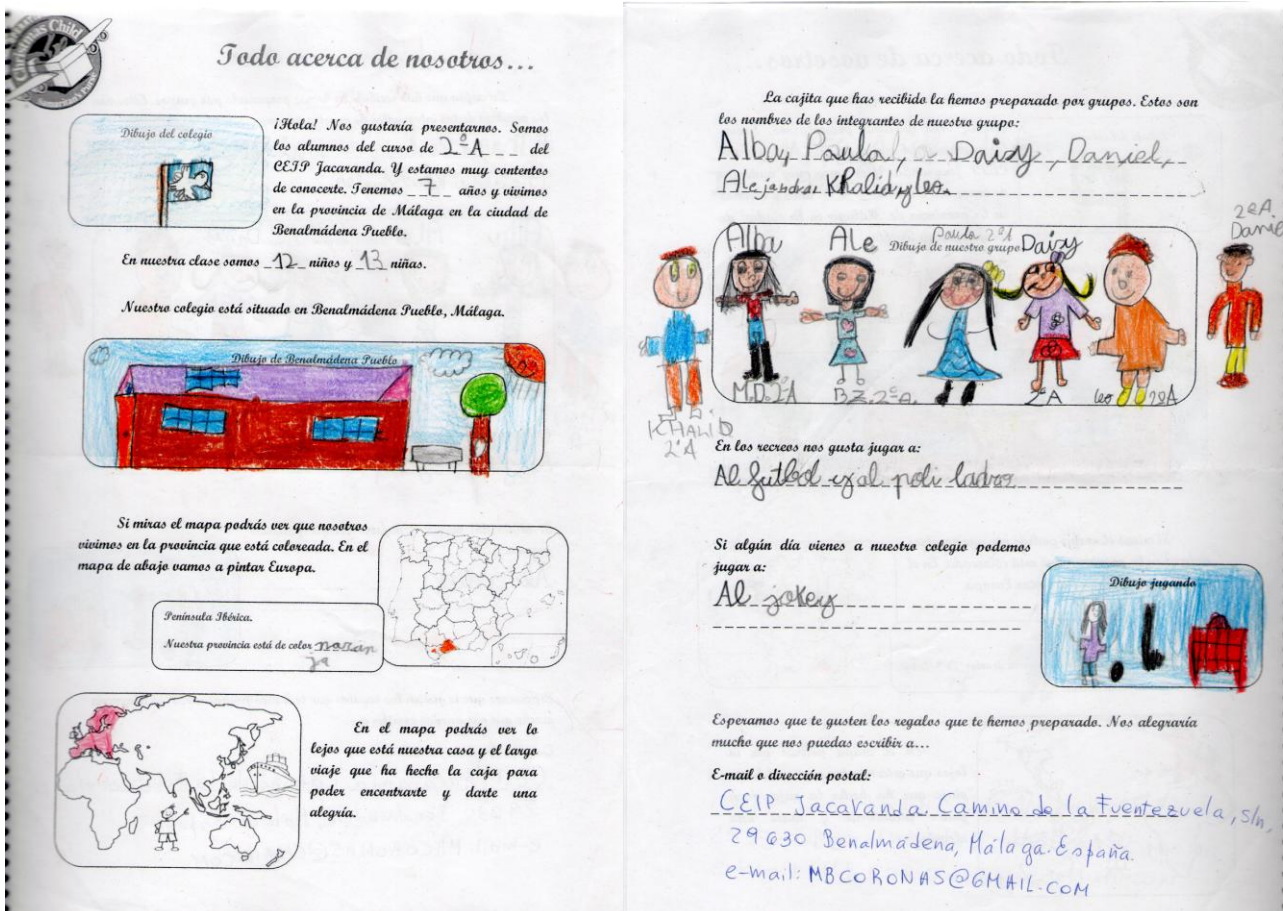 Christmas Child
Todo acerca de nosotros...
Dibujo del colegio
¡Hola! Nos gustaría presentarnos. Somos
los alumnos del curso de 2ºA del
CEIP Jacaranda. Y estamos muy contentos
de conocerte. Tenemos 7 años y vivimos
en la provincia de Málaga en la ciudad de
Benalmádena Pueblo.
En nuestra clase somos 12 niños y 13 niñas.
Nuestro colegio está situado en Benalmádena Pueblo, Málaga.
Dibujo de Benalmádena Pueblo
Si miras el mapa podrás ver que nosotros
vivimos en la provincia que está coloreada. En el
mapa de abajo vamos a pintar Europa.
Península Ibérica.
Nuestra provincia está de color naran
ja
En el mapa podrás ver lo
lejos que está nuestra casa y el largo
viaje que ha hecho la caja para
poder encontrarte y darte una
alegría.
La cajita que has recibido la hemos preparado por grupos. Estos son
los nombres de los integrantes de nuestro grupo:
Alba, Paula, Daizy, Daniel,
Alejandra, Khalid y leo.
2ºA.
Daniel
Alba Ale Paula 2ºA Daizy
Dibujo de nuestro grupo
M.D. 2ºA B.Z. 2ºA. 2ºA leo 2ºA
KHALID
2ºA
En los recreos nos gusta jugar a:
Al futbol y al poli ladron
Si algún día vienes a nuestro colegio podemos
jugar a:
Al jokey
Dibujo jugando
Esperamos que te gusten los regalos que te hemos preparado. Nos alegraría
mucho que nos puedas escribir a...
E-mail o dirección postal:
CEIP Jacaranda. Camino de la Fuentezuela, s/n,
29630 Benalmádena, Málaga. España.
e-mail: MBCORONAS@GMAIL.COM